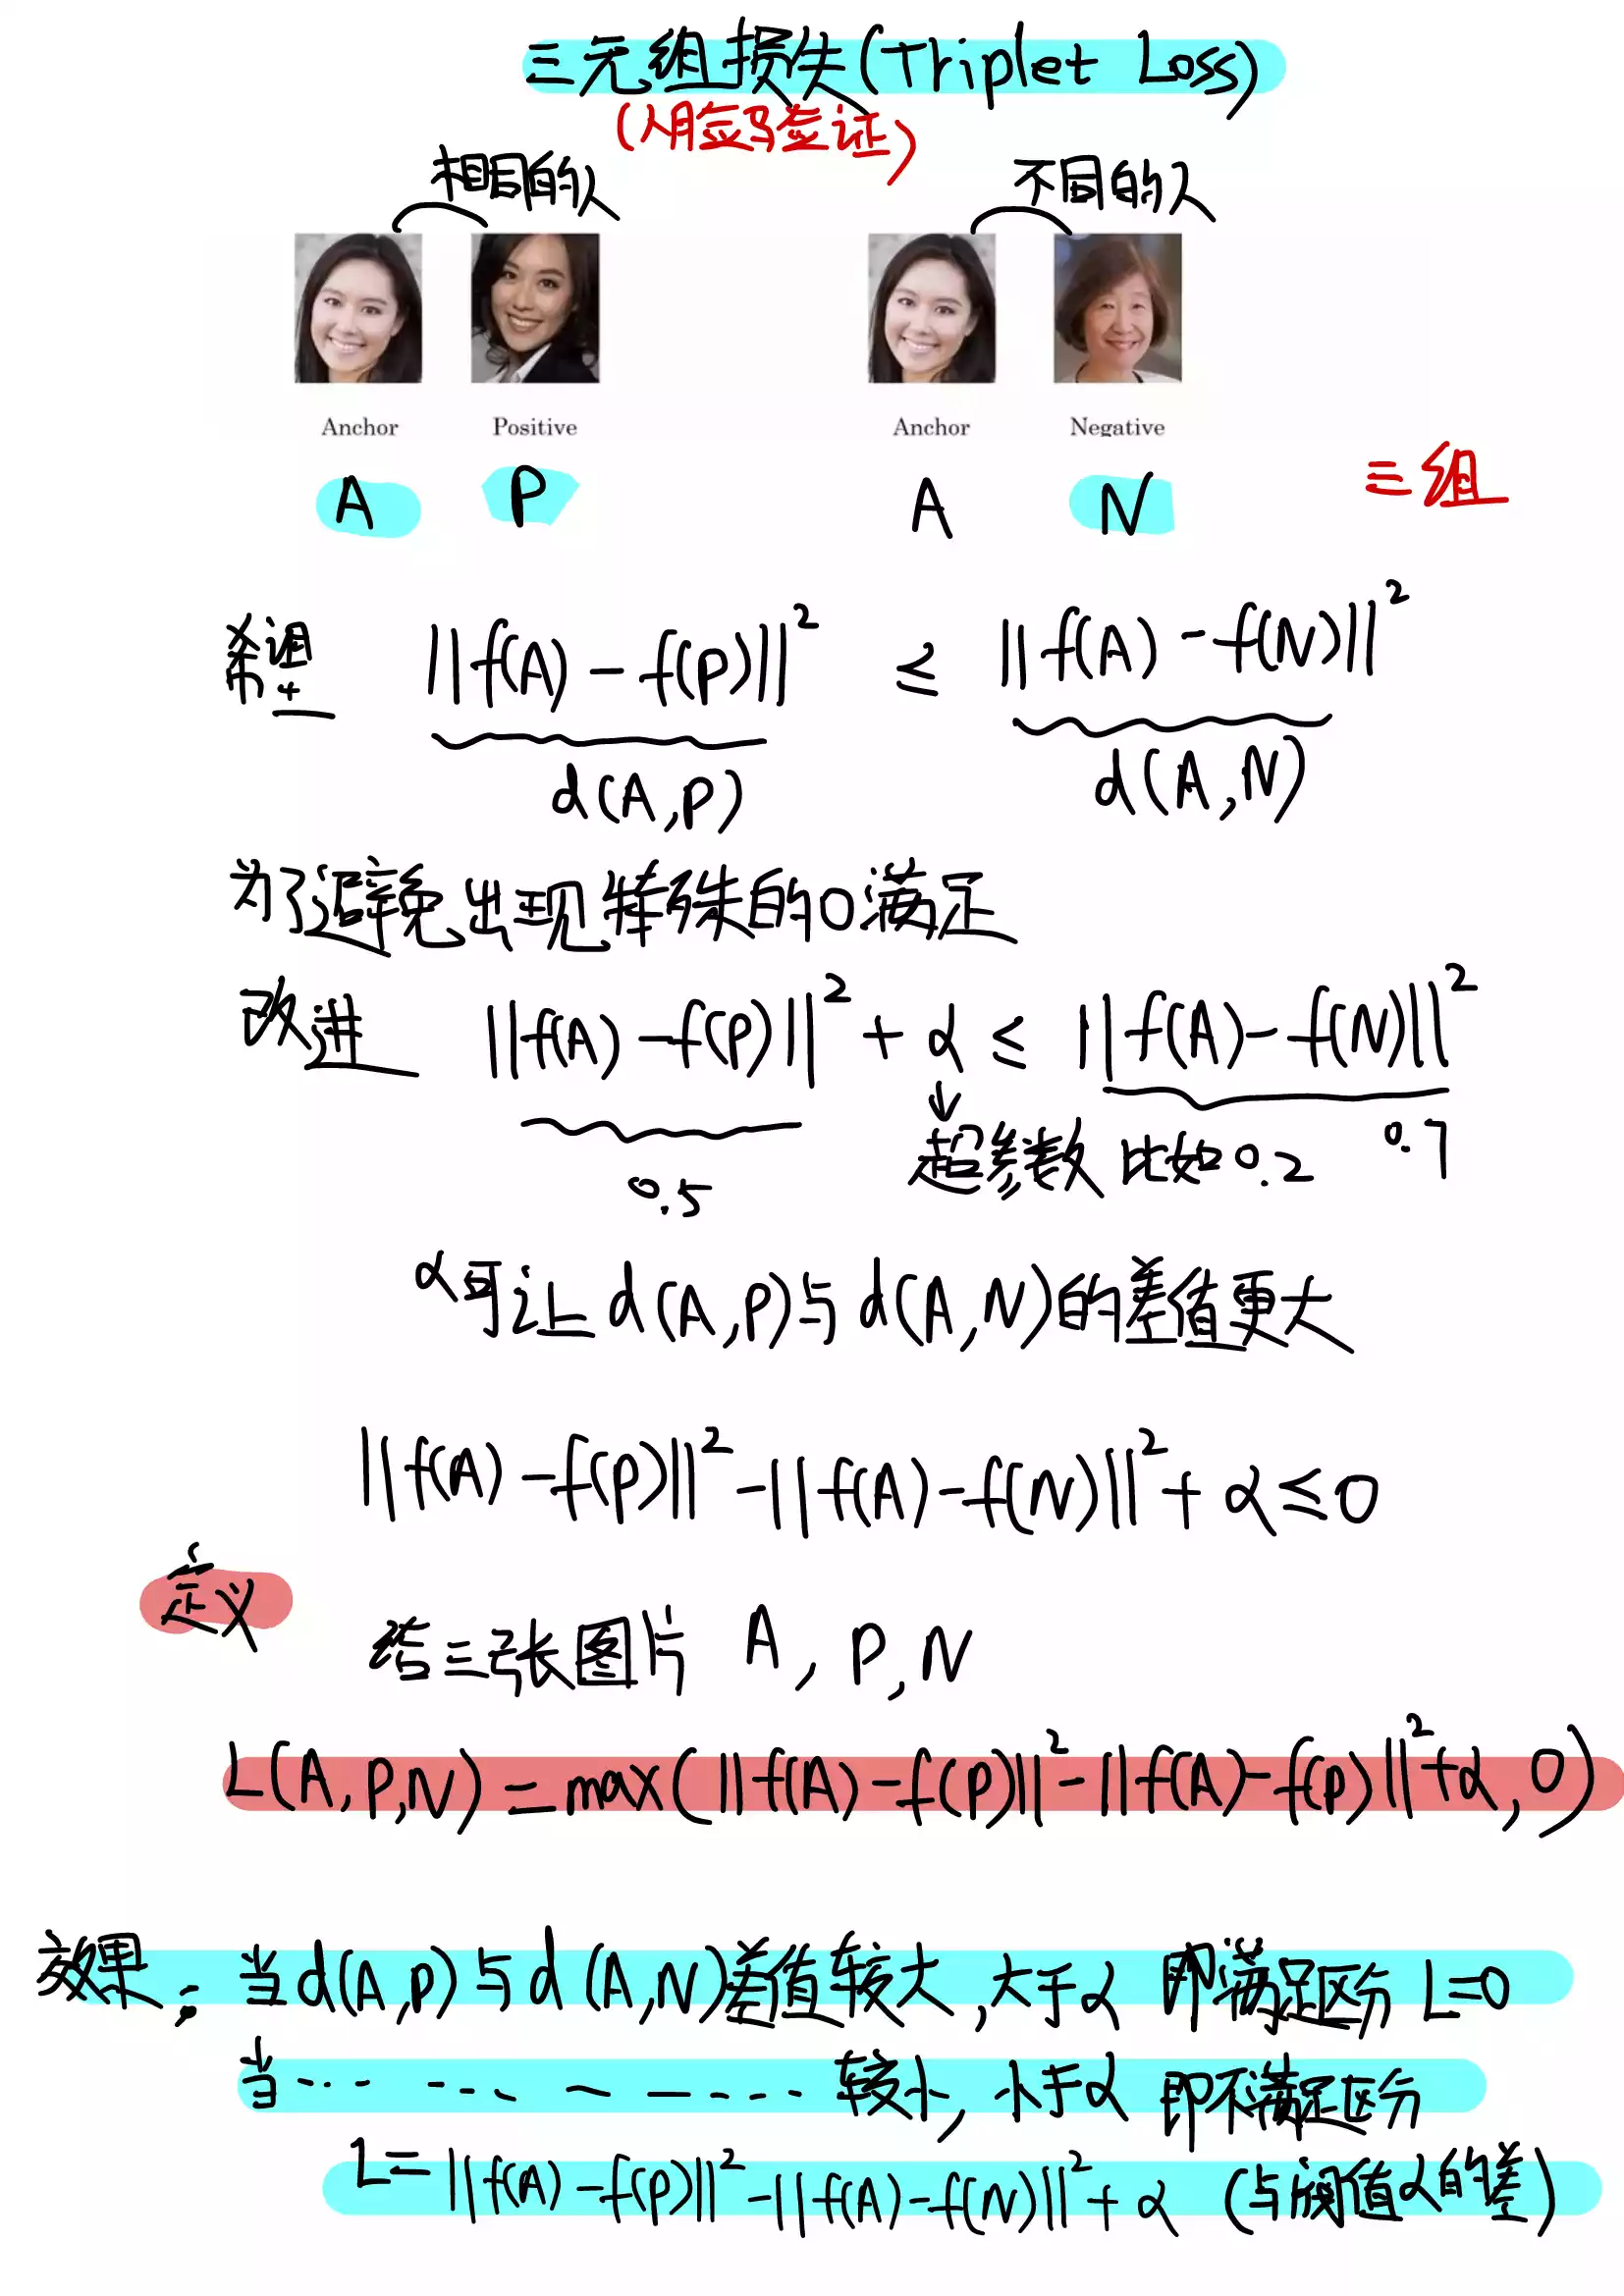 三元组损失(Triplet Loss)
(人脸验证)
相同的人 不同的人
Anchor Positive Anchor Negative
A P A N 三组
希望 ||f(A) - f(P)||² ≤ ||f(A) - f(N)||²
d(A,P) d(A,N)
为了避免出现特殊的0满足
改进 ||f(A) - f(P)||² + α ≤ ||f(A) - f(N)||²
↓
0.5 超参数 比如0.2 0.7
α可让d(A,P)与d(A,N)的差值更大
||f(A) - f(P)||² - ||f(A) - f(N)||² + α ≤ 0
定义
给三张图片 A, P, N
L(A,P,N) = max(||f(A) - f(P)||² - ||f(A) - f(P)||² + α, 0)
效果: 当d(A,P)与d(A,N)差值较大,大于α 即满足区分 L=0
当…………较小,小于α 即不满足区分
L = ||f(A) - f(P)||² - ||f(A) - f(N)||² + α (与阈值α的差)